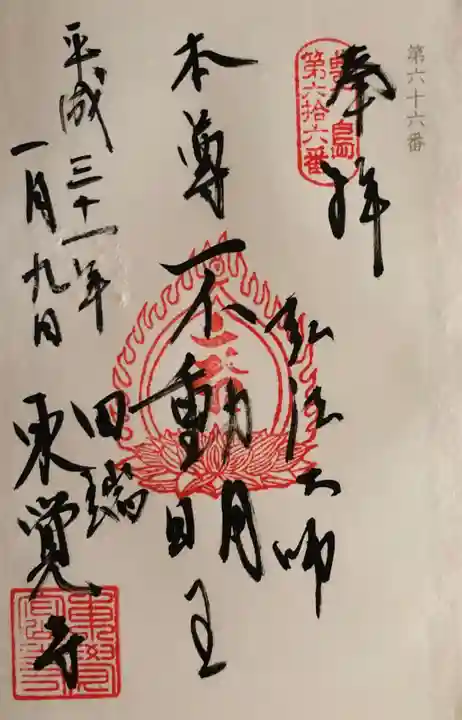 第六十六番
奉拝
豊島
第六拾六番
弘法大師
本尊不動明王
平成三十一年
一月九日
田端
東覚寺